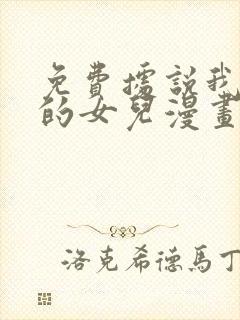 免費據說我
的女兒漫畫
洛克希德馬丁